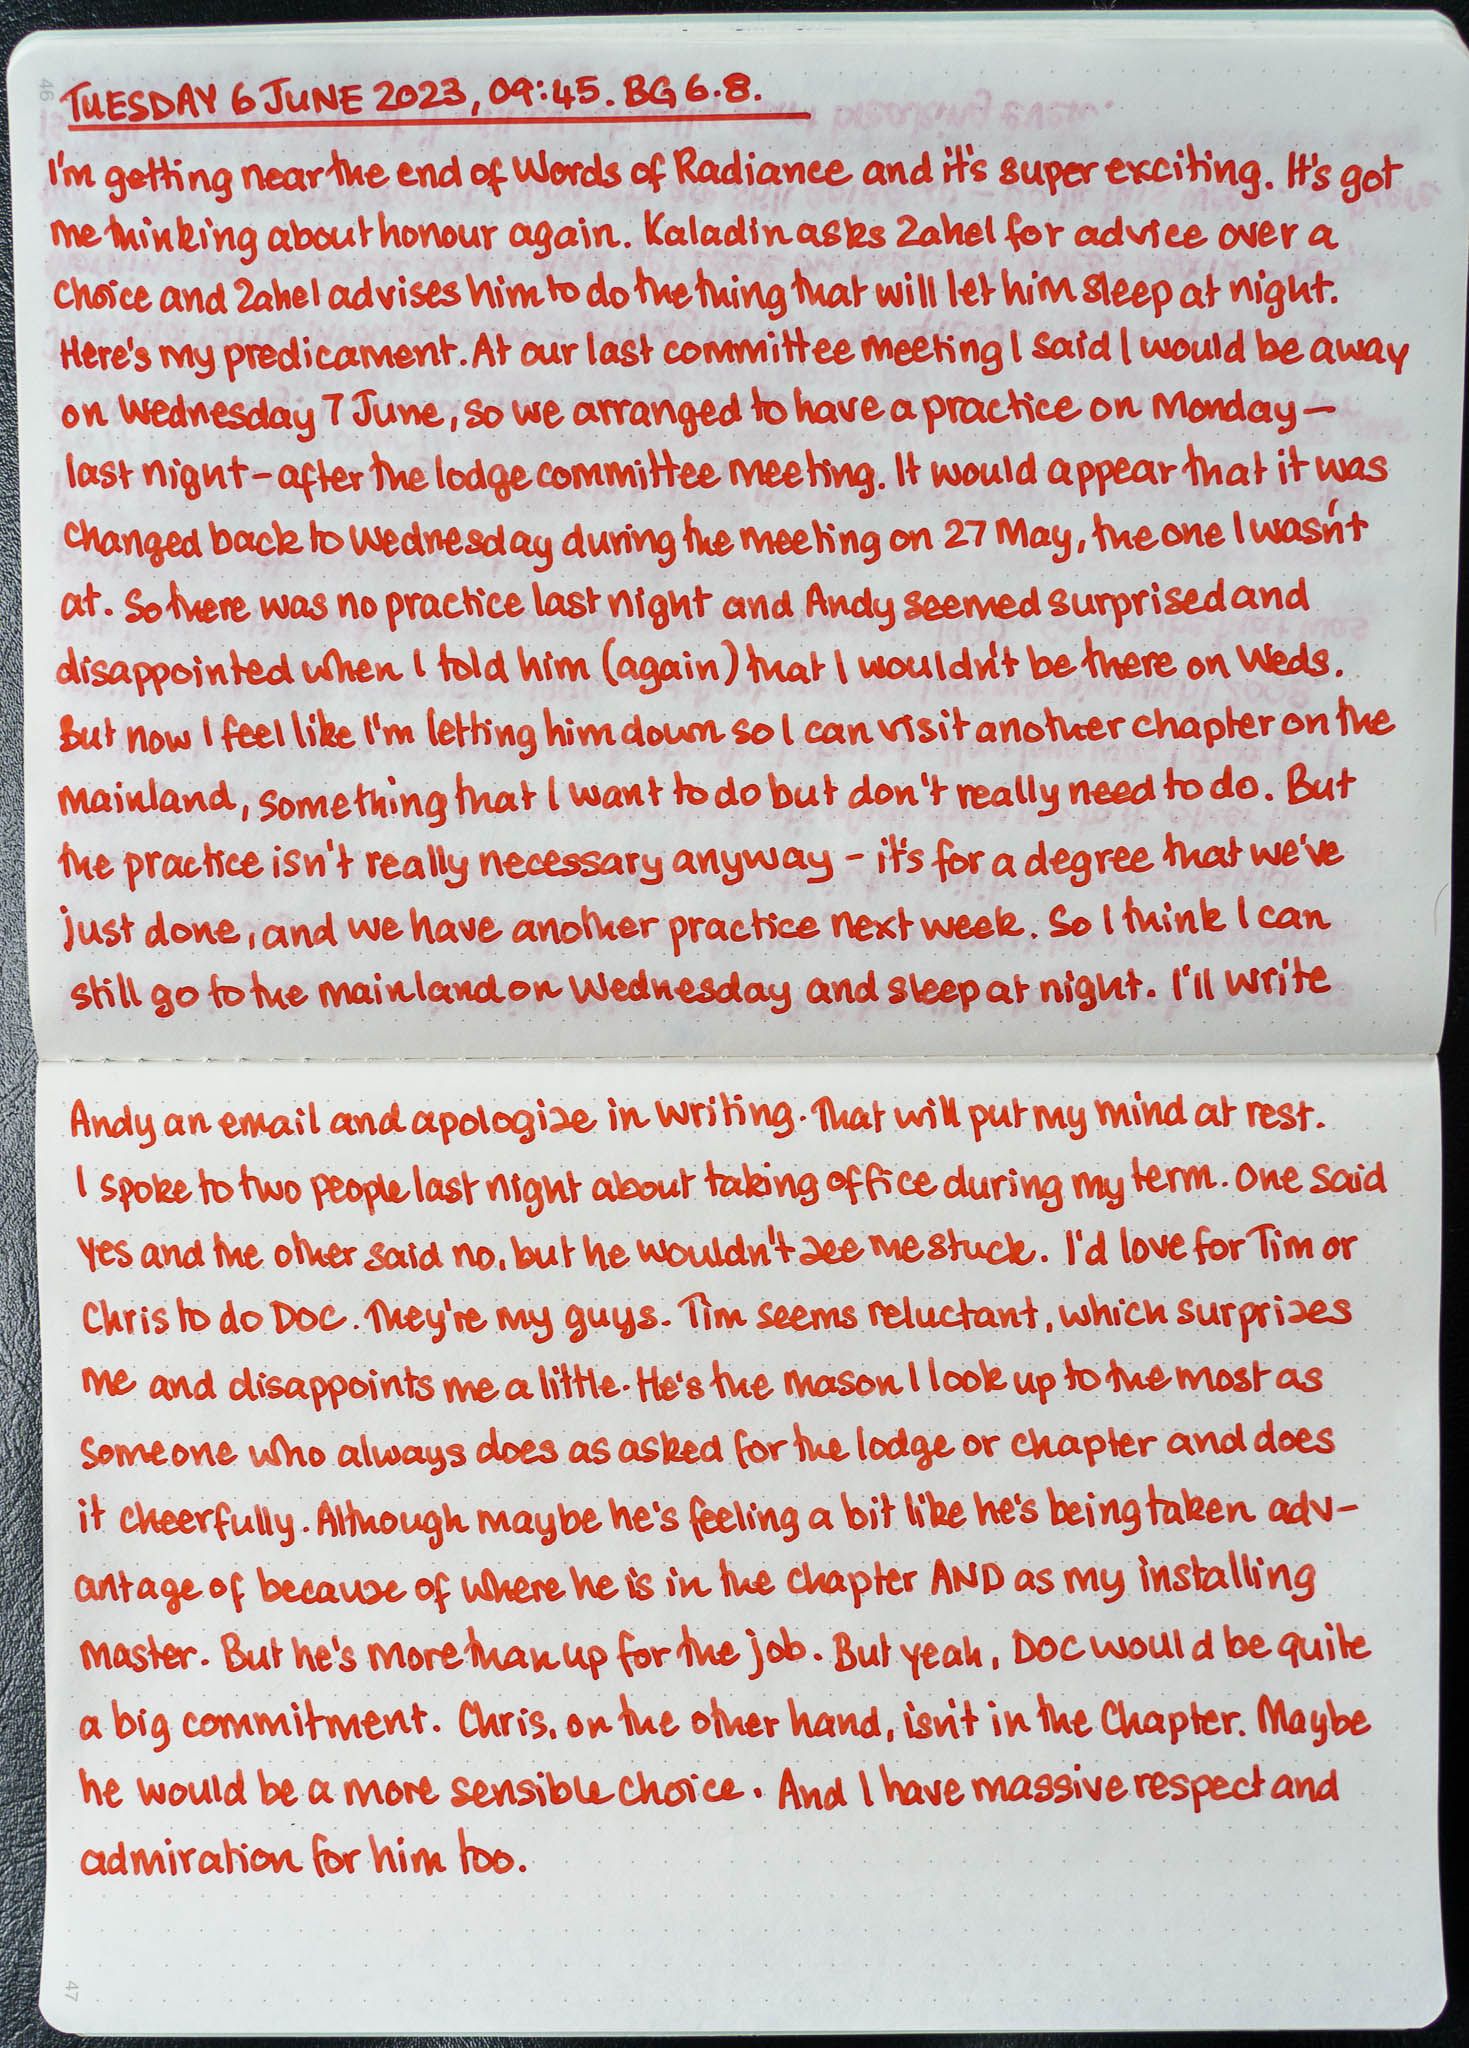 46
TUESDAY 6 JUNE 2023, 09:45. BG 6.8.
I'm getting near the end of Words of Radiance and it's super exciting. It's got
me thinking about honour again. Kaladin asks Zahel for advice over a
choice and Zahel advises him to do the thing that will let him sleep at night.
Here's my predicament. At our last committee meeting I said I would be away
on Wednesday 7 June, so we arranged to have a practice on Monday –
last night – after the lodge committee meeting. It would appear that it was
changed back to Wednesday during the meeting on 27 May, the one I wasn't
at. So there was no practice last night and Andy seemed surprised and
disappointed when I told him (again) that I wouldn't be there on Weds.
But now I feel like I'm letting him down so I can visit another chapter on the
mainland, something that I want to do but don't really need to do. But
the practice isn't really necessary anyway – it's for a degree that we've
just done, and we have another practice next week. So I think I can
still go to the mainland on Wednesday and sleep at night. I'll write
Andy an email and apologize in writing. That will put my mind at rest.
I spoke to two people last night about taking office during my term. One said
yes and the other said no, but he wouldn't see me stuck. I'd love for Tim or
Chris to do DOC. They're my guys. Tim seems reluctant, which surprizes
me and disappoints me a little. He's the mason I look up to the most as
someone who always does as asked for the lodge or chapter and does
it cheerfully. Although maybe he's feeling a bit like he's being taken adv-
antage of because of where he is in the chapter AND as my installing
master. But he's more than up for the job. But yeah, DOC would be quite
a big commitment. Chris, on the other hand, isn't in the Chapter. Maybe
he would be a more sensible choice. And I have massive respect and
admiration for him too.
47